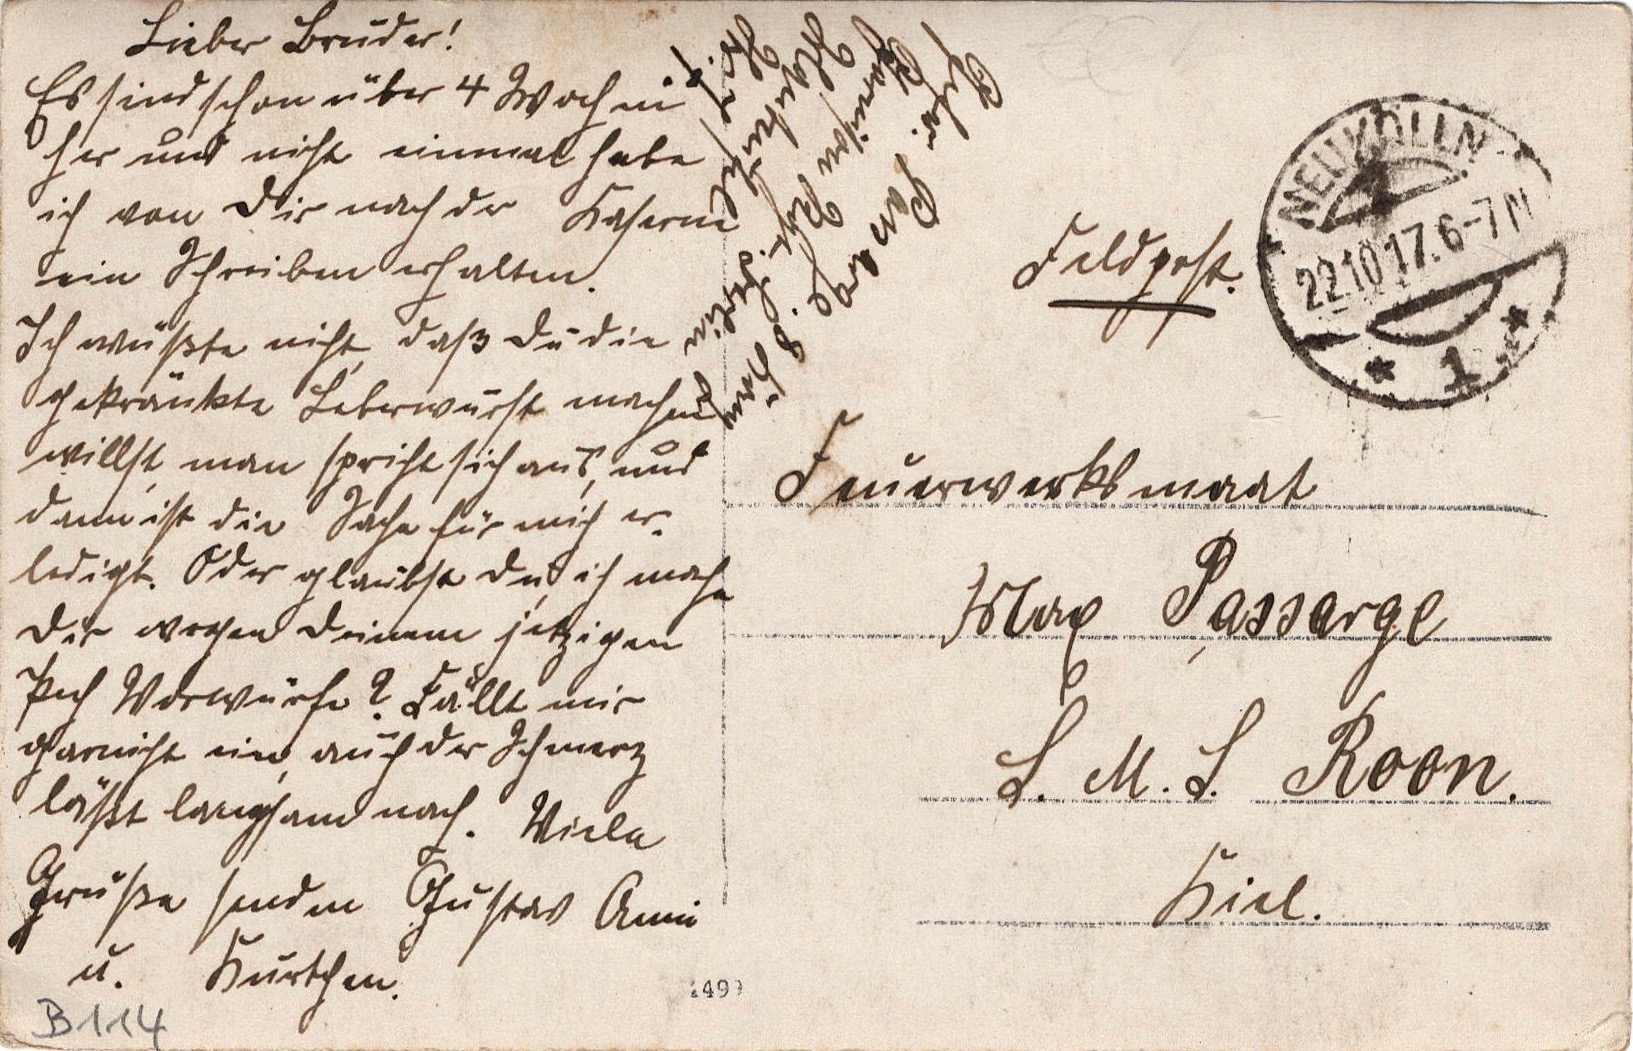 Lieber Bruder!
Es sind schon über 4 Wochen
her und nicht einmal habe
ich von Dir nach der Kaserne
ein Schreiben erhalten.
Ich wüßte nicht, daß Du die
gekränkte Leberwurst machen
willst, man spricht sich aus, und
dann ist die Sache für mich er-
ledigt. Oder glaubst Du, ich mache
Dir wegen Deinem jetzigen
Pech Vorwürfe? Fällt mir
garnicht ein, auch der Schmerz
läßt langsam nach. Viele
Grüße senden Gustav Anni
u. Kurtchen.
Passarge
Berlin
Feldpost.
NEUKÖLLN
22.10.17.6-7N
* 1 *
Feuerwerksmaat
Max Passarge
S. M. S. Roon.
Kiel.
B 114